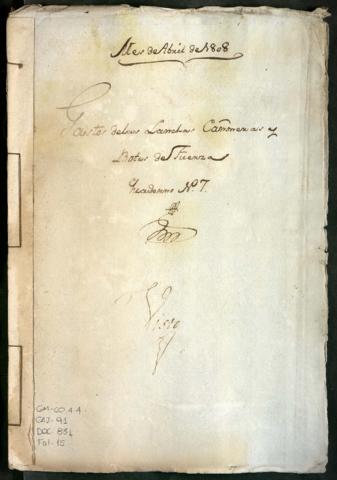 Mes de Abril de 1808
Gastos de las Lanchas Cañoneras y
Botes de Fuerza
Quaderno N.º 7.
Visto
GM-CO.4.4
CAJ-91
DOC-834
Fol-15